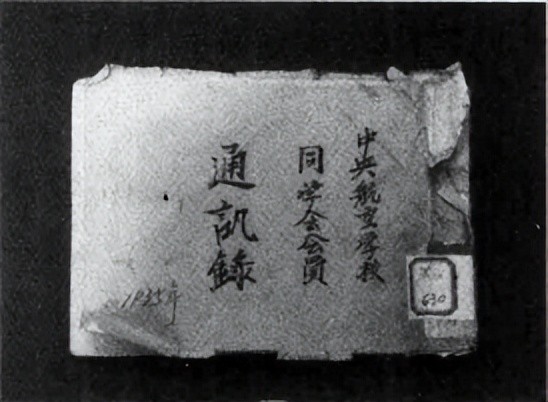 中央航空学校
同学会会員
通訊錄
1935年
630